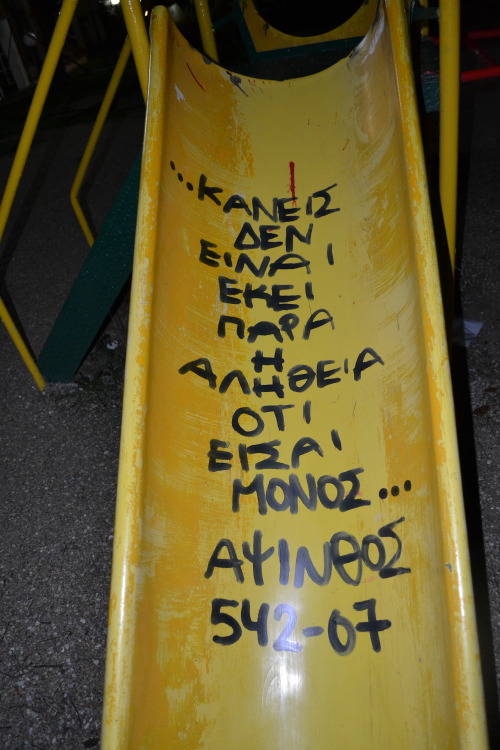 ...ΚΑΝΕΙΣ
ΔΕΝ
ΕΙΝΑΙ
ΕΚΕΙ
ΠΑΡΑ
Η
ΑΛΗΘΕΙΑ
ΟΤΙ
ΕΙΣΑΙ
ΜΟΝΟΣ...
ΑΨΙΝΘΟΣ
542-07